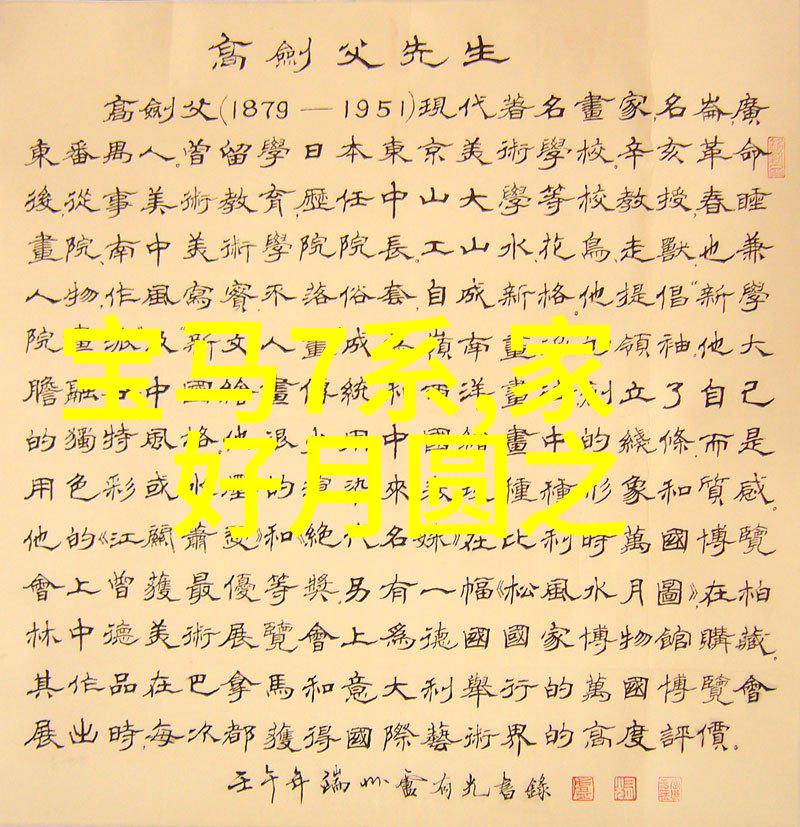 高劍父先生
高劍父(1879—1951)現代著名畫家,名崙,廣
東番禺人。曾留學日本東京美術學校。辛亥革命
後,從事美術教育,歷任中山大學等校教授,春睡
畫院、南中美術學院院長。工山水、花鳥、走獸,也兼
人物,作風寫實,不落俗套,自成新格。他提倡“新學
院畫派”及“新文人畫”,成
嶺南畫
領袖。他大
膽融
中國繪畫傳統
洋畫
創立了自己
的獨特風格。他
中國
畫中的綫條,而是
用色彩或水墨的渲染來
種種形象和質感。
他的《江關蕭瑟》和《絕代名姝》在比利時萬國博覽
會上曾獲最優等獎。另有一幅《松風水月圖》,在柏
林中德美術展覽會上爲德國國家博物館購藏。
其作品在巴拿馬和意大利舉行的萬國博覽會
展出時,每次都獲得國際藝術界的高度評價。
宝马7系,家
好月圆之
壬午年端州盧有光書錄